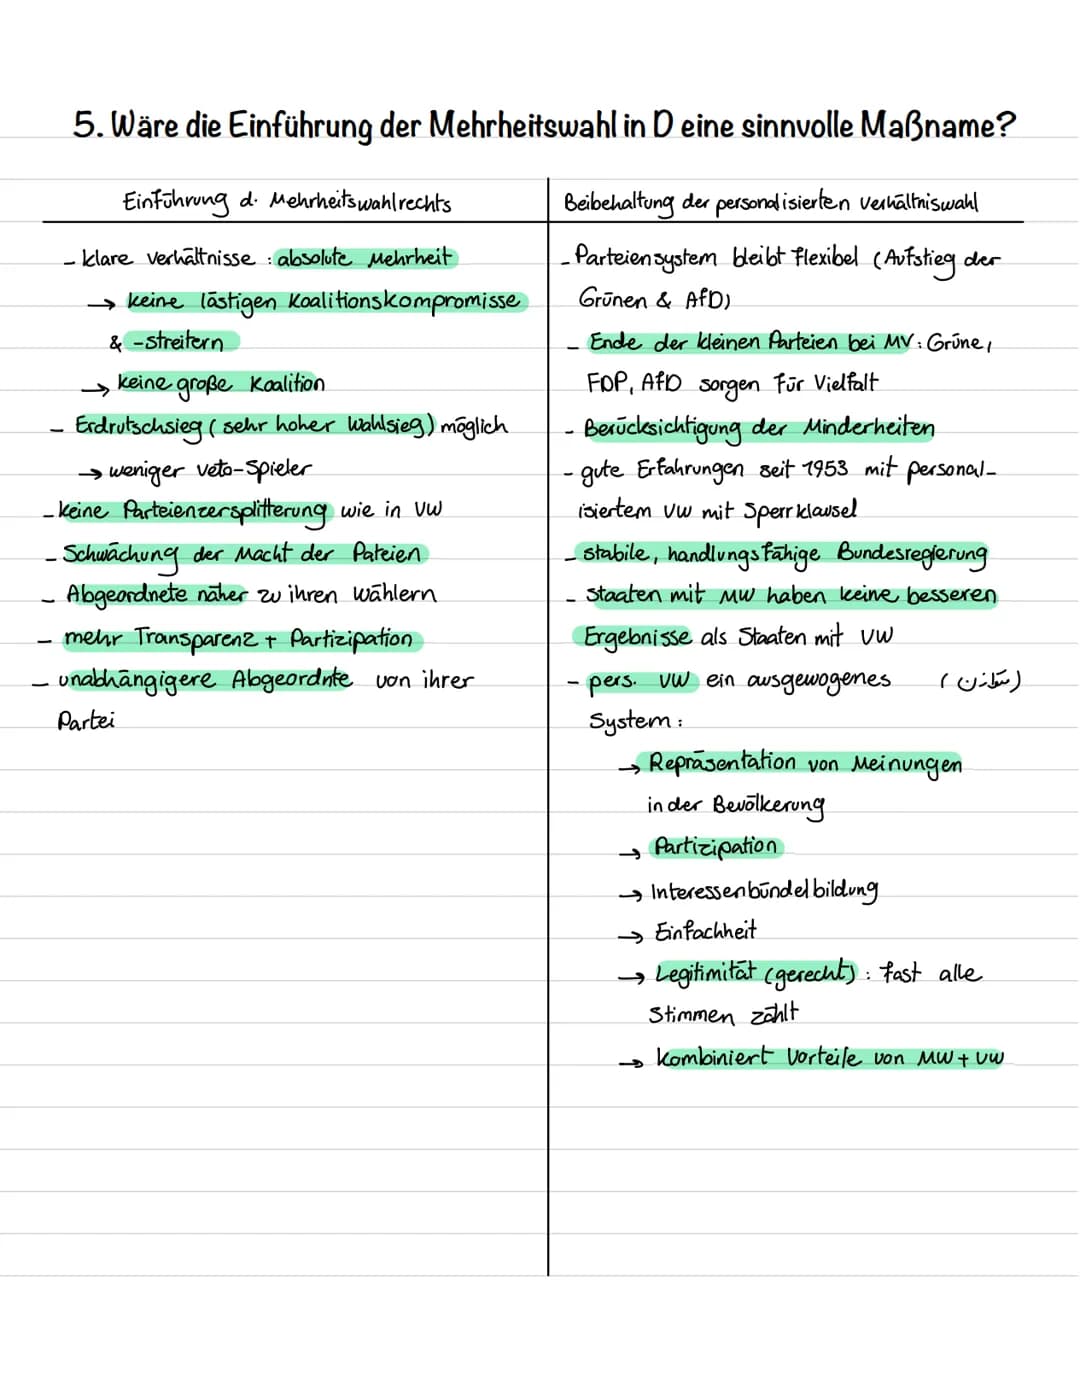 5. Wäre die Einführung der Mehrheitswahl in D eine sinnvolle Maßname?
Einführung d. Mehrheitswahlrechts
- klare Verhältnisse : absolute Mehrheit
→ keine lästigen Koalitionskompromisse
& -streitern
→ keine große Koalition
- Erdrutschsieg ( sehr hoher Wahlsieg) möglich
→ weniger Veto-Spieler
- keine Parteienzersplitterung wie in VW
- Schwächung der Macht der Pateien
- Abgeordnete näher zu ihren Wählern
- mehr Transparenz + Partizipation
- unabhängigere Abgeordnte von ihrer
Partei
Beibehaltung der personalisierten Verhältniswahl
- Parteiensystem bleibt flexibel (Aufstieg der
Grünen & AfD)
- Ende der kleinen Parteien bei MV: Grüne,
FDP, AfD sorgen für Vielfalt
- Berücksichtigung der Minderheiten
- gute Erfahrungen seit 1953 mit personal-
isiertem VW mit Sperrklausel
- stabile, handlungsfähige Bundesregierung
- Staaten mit MW haben keine besseren
Ergebnisse als Staaten mit VW
- pers. VW ein ausgewogenes (متوازن)
System :
→ Repräsentation von Meinungen
in der Bevölkerung
→ Partizipation
→ Interessenbündelbildung
→ Einfachheit
→ Legitimität (gerecht) : fast alle
Stimmen zählt
→ kombiniert Vorteile von MW + VW